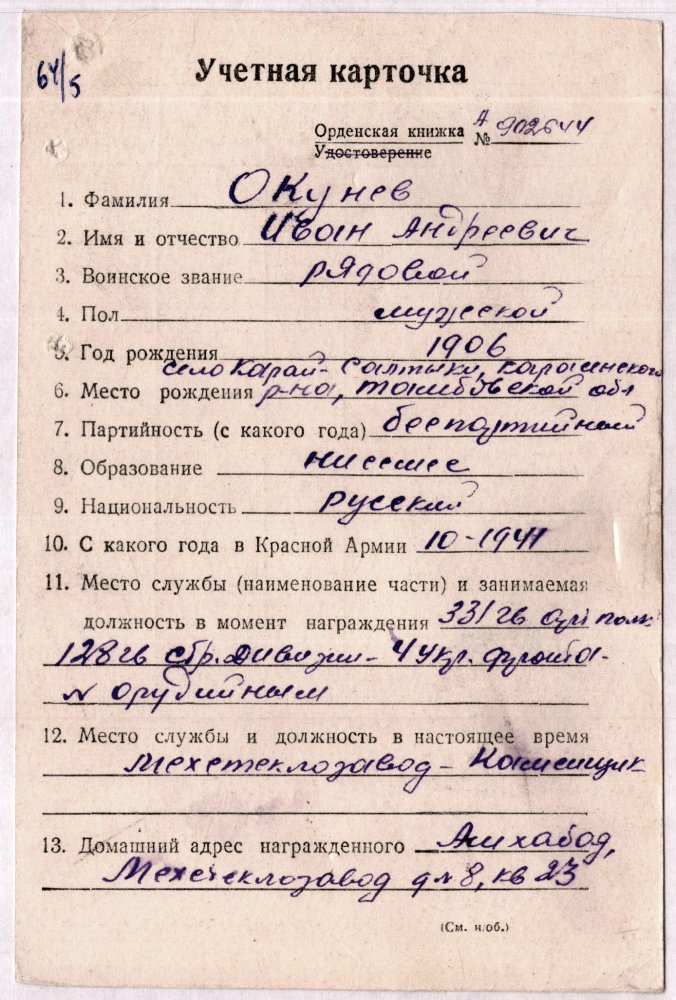 64/5
Учетная карточка
Орденская книжка А № 902644
Удостоверение
1. Фамилия Окунев
2. Имя и отчество Иван Андреевич
3. Воинское звание рядовой
4. Пол мужской
5. Год рождения 1906
село Карай-Салтыки, Карагинского
6. Место рождения р-на, тамбовской обл
7. Партийность (с какого года) беспартийный
8. Образование низшее
9. Национальность русский
10. С какого года в Красной Армии 10-1941
11. Место службы (наименование части) и занимаемая
должность в момент награждения 331 гв полк
128 гв стр. дивизии - 4 Укр. фронта -
орудийным
12. Место службы и должность в настоящее время
Мехстеклозавод - Каменщик
13. Домашний адрес награжденного Ашхабад,
Мехстеклозавод д № 8, кв 23
(См. н/об.)